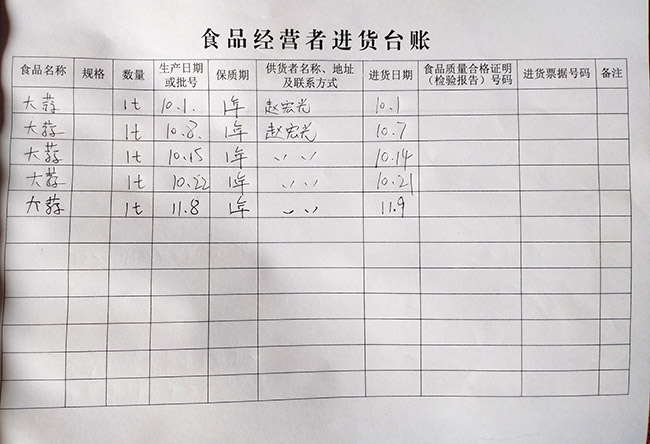 食品经营者进货台账
食品名称 规格 数量 生产日期或批号 保质期 供货者名称、地址及联系方式 进货日期 食品质量合格证明（检验报告）号码 进货票据号码 备注
大蒜 1t 10.1. 1年 赵宏光 10.1
大蒜 1t 10.8. 1年 赵宏光 10.7
大蒜 1t 10.15 1年 〃 〃 10.14
大蒜 1t 10.22 1年 〃 〃 10.21
大蒜 1t 11.8 1年 〃 〃 11.9